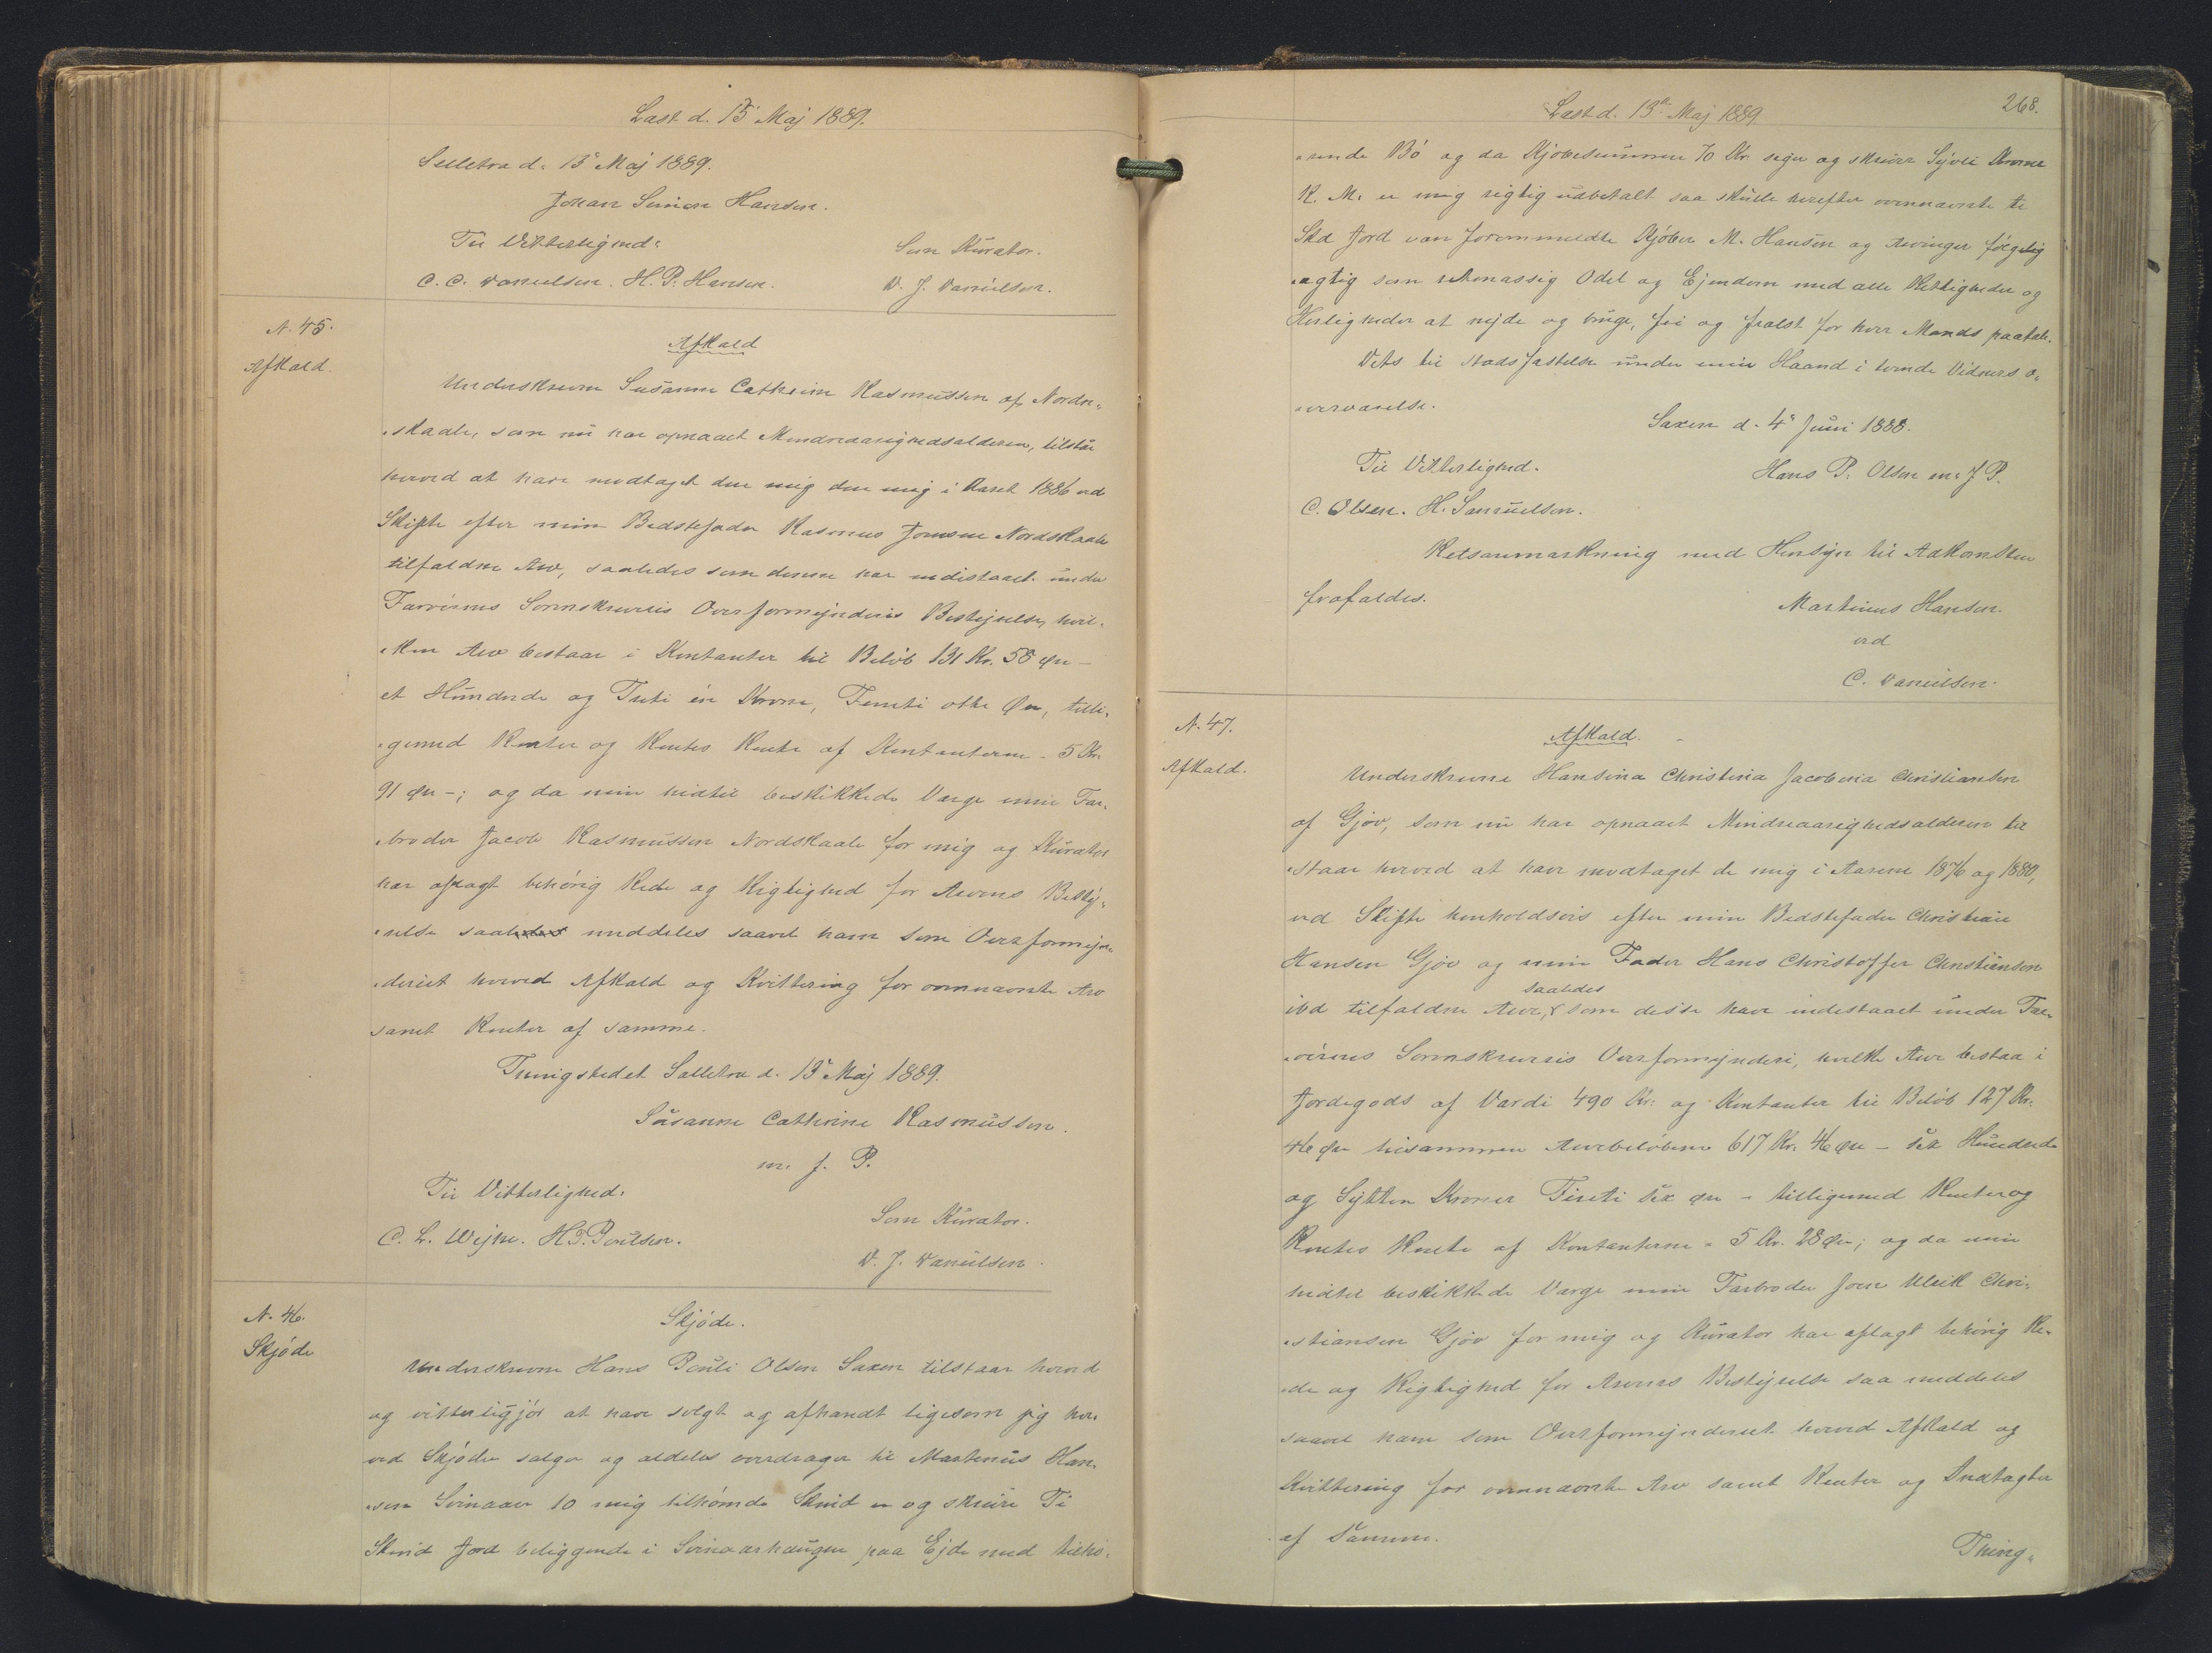 Læst d. 13' Maj 1889.
Selletra d. 13' Maj 1889.
Johan Simon Hansen.
Til Vitterlighed: Som Kurator.
C. C. Danielsen. H. P. Hansen. D. J. Danielsen.
N. 45.
Afkald.
Afkald
Underskrevne Susanne Cathrine Rasmussen af Nordre-
skaale, som nu har opnaaet Mindreaarighedsalderen, tilstaar
herved at have modtaget den mig den mig i Aaret 1886 ved
Skifte efter min Bedstefader Rasmus Joensen Nordskaale
tilfaldne Arv, saaledes som denne har indestaaet under
Færøernes Sorenskriveris Overformynderis Bestyrelse, hvil-
ken Arv bestaar i Kontanter til Beløb 131 Kr. 58 Øre -
et Hundrede og Treti én Krone, Femti otte Øre, tilli-
gemed Renter og Rentes Rente af Kontanterne - 5 Kr.
91 Øre -; og da min hidtil beskikkede Værge min Far-
broder Jacob Rasmussen Nordskaale for mig og Kurator
har aflagt behørig Rede og Rigtighed for Arvens Besty-
relse saaledes meddeles saavel ham som Overformyn-
deriet herved Afkald og Kvittering for ovennævnte Arv
samt Renter af samme.
Thingstedet Selletra d. 13' Maj 1889.
Susanne Cathrine Rasmussen.
m. f. P.
Til Vitterlighed: Som Kurator.
C. L. Wejhe. H. P. Poulsen. D. J. Danielsen.
N. 46.
Skjøde
Skjøde.
Underskrevne Hans Pouli Olsen Saxen tilstaar herved
og vitterliggjør at have solgt og afhændt ligesom jeg her-
ved Skjøder sælger og aldeles overdrager til Martinus Han-
sen Svinaaer 10 mig tilhørende Skind er og skriver Ti
Skind Jord beliggende i Svinaarhaugen paa Ejde med tilhø-
268.
Læst d. 13de Maj 1889
rende Bø og da Kjøbesummen 70 Kr. siger og skriver Syvti Kroner
K. M. er mig rigtig udbetalt saa skulle herefter ovennævnte ti
Skd Jord være forommeldte Kjøber M. Hansen og Arvinger følgelig
agtig som retmæssig Odel og Ejendom med alle Rettigheder og
Herligheder at nyde og bruge, fri og frelst for hver Mands paatale.
Dets til Stadfæstelse under min Haand i tvende Vidners o-
vervarelse.
Saxen d. 4' Juni 1888.
Til Vitterlighed. Hans P. Olsen m. f. P.
C. Olsen. H. Samuelsen.
Retsanmærkning med Hensyn til Adkomsten
frafaldes. Martinus Hansen.
ved
C. Danielsen.
N. 47.
Afkald.
Afkald.
Underskrevne Hansina Christina Jacobina Christiansen
af Gjov, som nu har opnaaet Mindreaarighedsalderen til
staar herved at have modtaget de mig i Aarene 1876 og 1880,
ved Skifte henholdsvis efter min Bedstefader Christian
Hansen Gjov og min Fader Hans Christoffer Christiansen
saaledes
ibd tilfaldne Arve, som disse have indestaaet under Fær-
øernes Sorenskriveris Overformynderi, hvilke Arve bestaa i
Jordegods af Værdi 490 Kr. og Kontanter til Beløb 127 Kr.
46 Øre tilsammen Arvebeløbene 617 Kr. 46 Øre - sex Hundrede
og Sytten Kroner Fireti sex Øre - tilligemed Renter og
Rentes Rente af Kontanterne - 5 Kr. 28 Øre; og da min
hidtil beskikkede Værge min Farbroder Joen Ulrik Chri-
stiansen Gjov for mig og Kurator har aflagt behørig Re-
de og Rigtighed for Arvens Bestyrelse saa meddeles
saavel ham som Overformynderiet herved Afkald og
Kvittering for ovennævnte Arv samt Renter og Indtægter
af samme.
Thing-